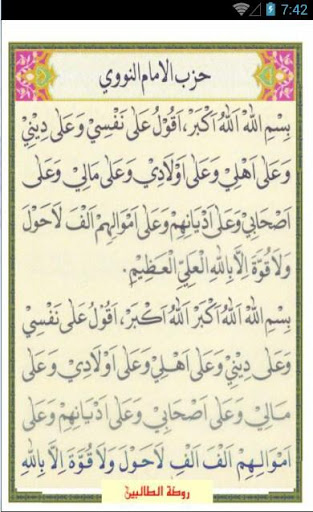 7:42
حزب الامام النووي
بِسْمِ اللهِ اَللهُ اَكْبَرُ، اَقُوْلُ عَلَى نَفْسِيْ وَعَلَى دِيْنِيْ
وَعَلَى اَهْلِيْ وَعَلَى اَوْلَادِيْ وَعَلَى مَالِيْ وَعَلَى
اَصْحَابِيْ وَعَلَى اَدْيَانِهِمْ وَعَلَى اَمْوَالِهِمْ اَلْفَ لَاحَوْلَ
وَلَا قُوَّةَ اِلَّا بِاللهِ الْعَلِيِّ الْعَظِيْمِ.
بِسْمِ اللهِ اَللهُ اَكْبَرُ اَللهُ اَكْبَرُ، اَقُوْلُ عَلَى نَفْسِيْ
وَعَلَى دِيْنِيْ وَعَلَى اَهْلِيْ وَعَلَى اَوْلَادِيْ وَعَلَى
مَالِيْ وَعَلَى اَصْحَابِيْ وَعَلَى اَدْيَانِهِمْ وَعَلَى
اَمْوَالِهِمْ اَلْفَ اَلْفِ لَاحَوْلَ وَلَا قُوَّةَ اِلَّا بِاللهِ
روضة الطالبين